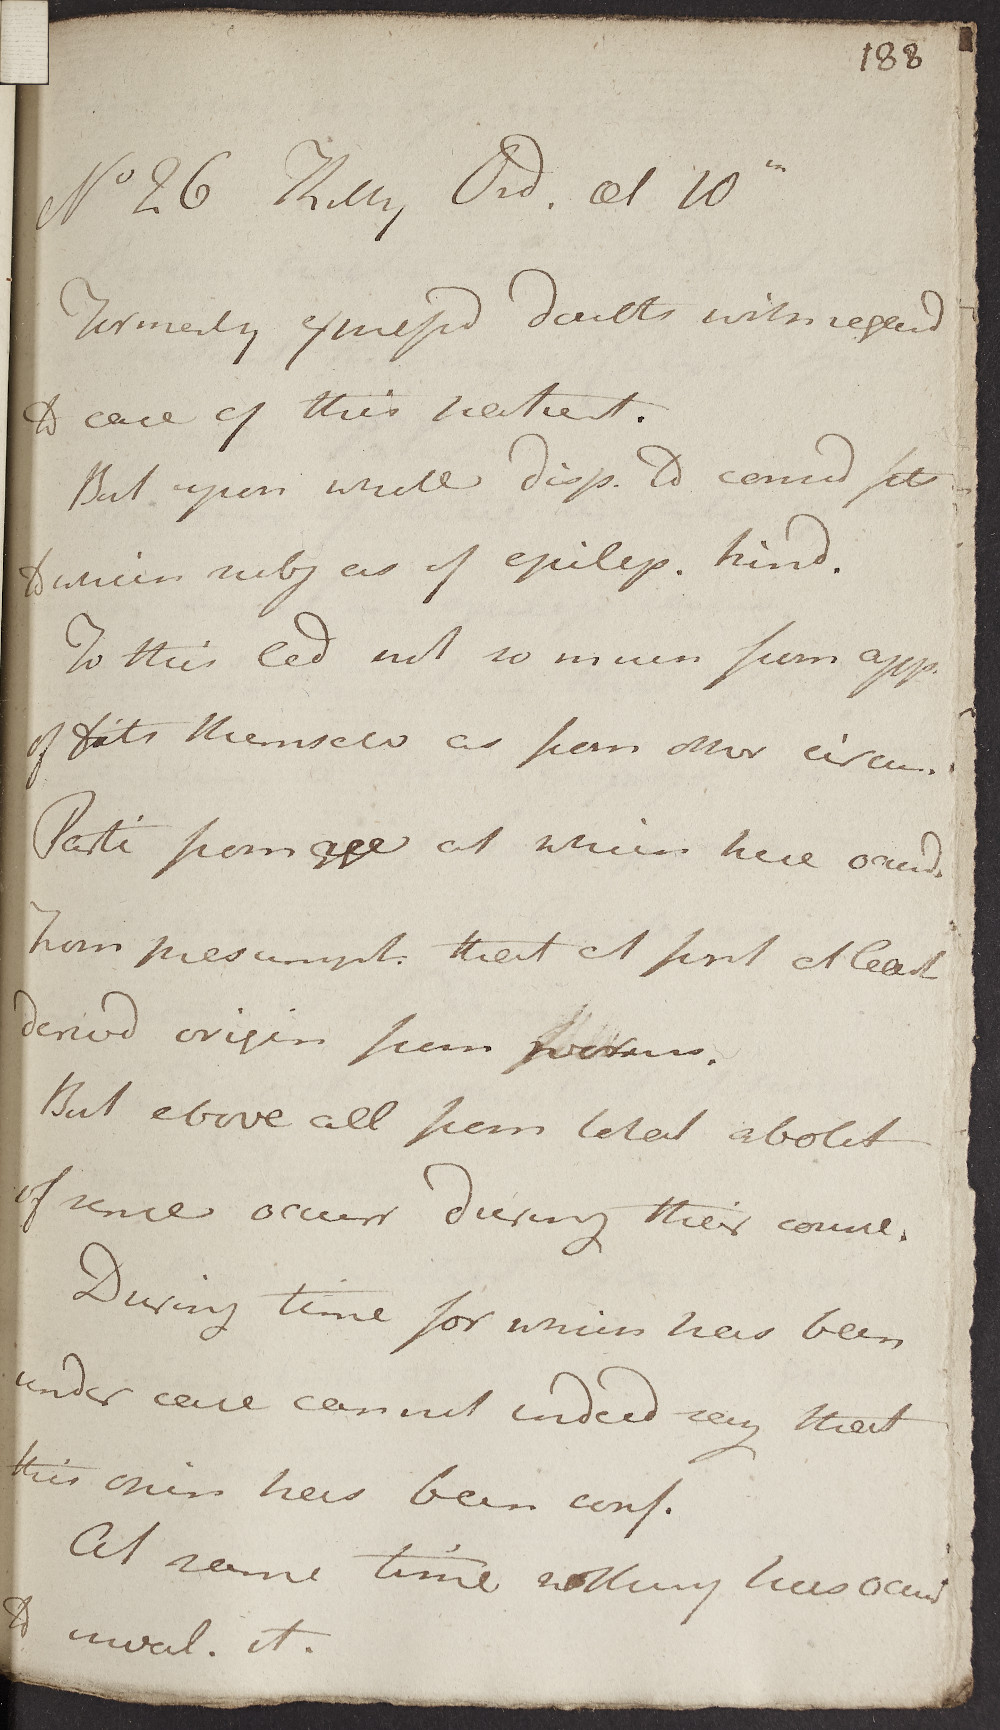 188
No 26 Kelly Ord. æt 10m
Formerly express'd doubts with regard
to case of this patient.
But upon whole disp. to consid fits
to which subj as of epilep. kind.
To this led not so much from app.
of fits themselves as from other circum.
Parti from age at which here occurd.
From presumpt. that at first at least
derived origin from worms.
But above all from total abolit
of sense occurr during their course.
During time for which has been
under care cannot indeed say that
this opin has been conf.
At same time nothing has occurd
to inval. it.